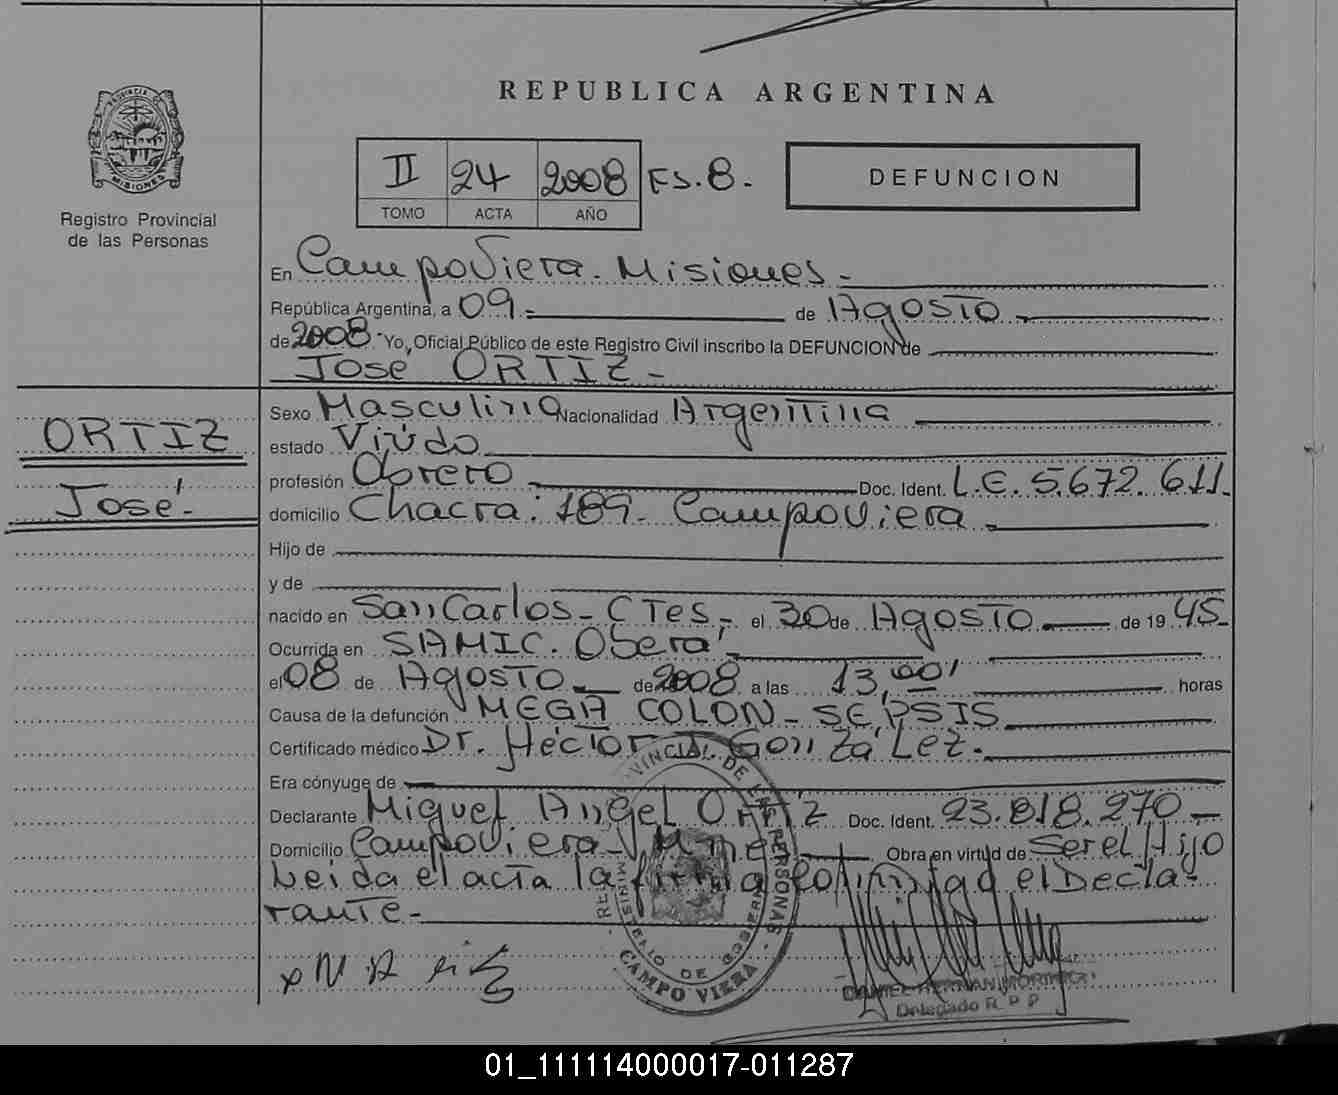 REPUBLICA ARGENTINA
PROVINCIA D
MISIONES
Registro Provincial
de las Personas
II 24 2008 FS.8.-
TOMO ACTA AÑO
DEFUNCION
En CampoViera. Misiones-
República Argentina, a 09.- de Agosto
de 2008. Yo, Oficial Público de este Registro Civil inscribo la DEFUNCION de
José ORTIZ-
ORTIZ
José.
Sexo Masculino Nacionalidad Argentina
estado Viúdo
profesión Obrero Doc. Ident. L.E. 5.672.611.
domicilio Chacra: 189- CampoViera
Hijo de
y de
nacido en San Carlos-CTes- el 30 de Agosto de 19 45-
Ocurrida en SAMIC. Oberá-
el 08 de Agosto de 2008 a las 13,00' horas
Causa de la defunción MEGA COLON-SEPSIS
Certificado médico Dr. Héctor Gonzá Lez.-
Era cónyuge de
Declarante Miguel Angel Ortíz Doc. Ident. 23.818.270-
Domicilio CampoViera- Mnes Obra en virtud de Ser el Hijo
Leida el acta la firma conmigo el Decla-
rante-
PROVINCIAL DE LAS PERSONAS
MINISTERIO DE GOBIERNO
CAMPO VIERA
DANIEL HERNAN
Delegado R. P. P.
01_111114000017-011287